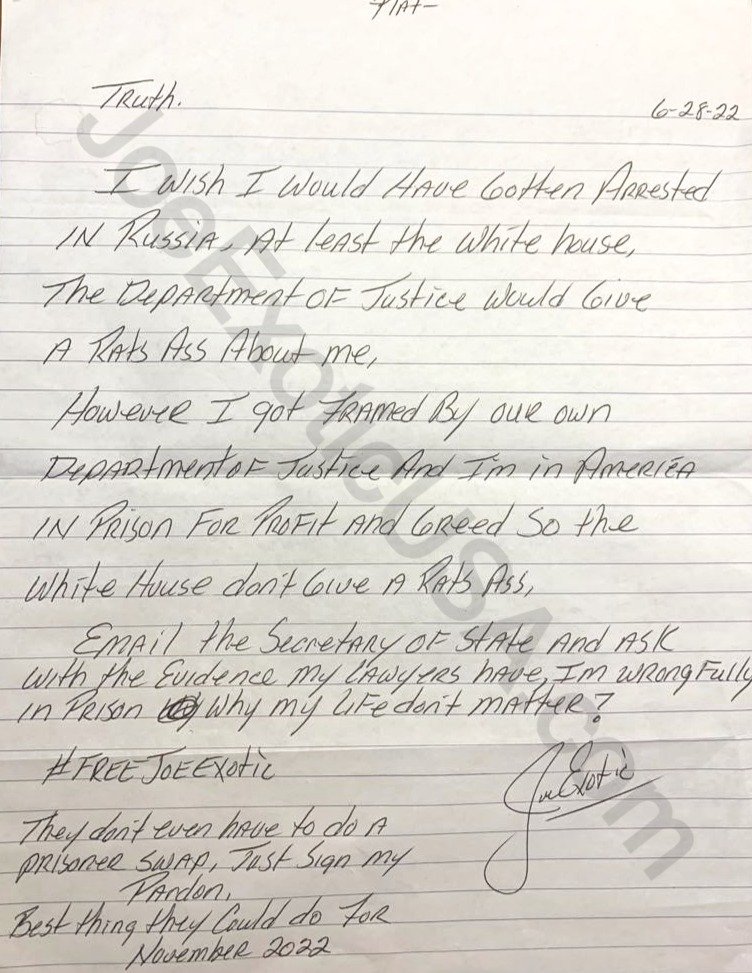 Truth.
6-28-22
I Wish I Would Have Gotten Arrested
IN Russia, At least the White house,
The Department OF Justice Would Give
A Rats Ass About me,
However I got Framed By our own
Department OF Justice And I'm in America
IN Prison For Profit And Greed So the
White House don't Give A Rats Ass,
Email the Secretary OF State And Ask
With the Evidence my lawyers have, I'm wrongfully
in Prison Why my life don't matter?
#FREEJOEEXotic
Joe Exotic
They don't even have to do A
prisoner swap, Just Sign my
Pardon,
Best thing they Could do For
November 2022
JoeExoticUSA.com